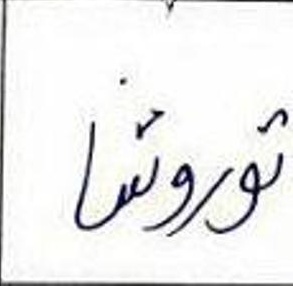 توروشا